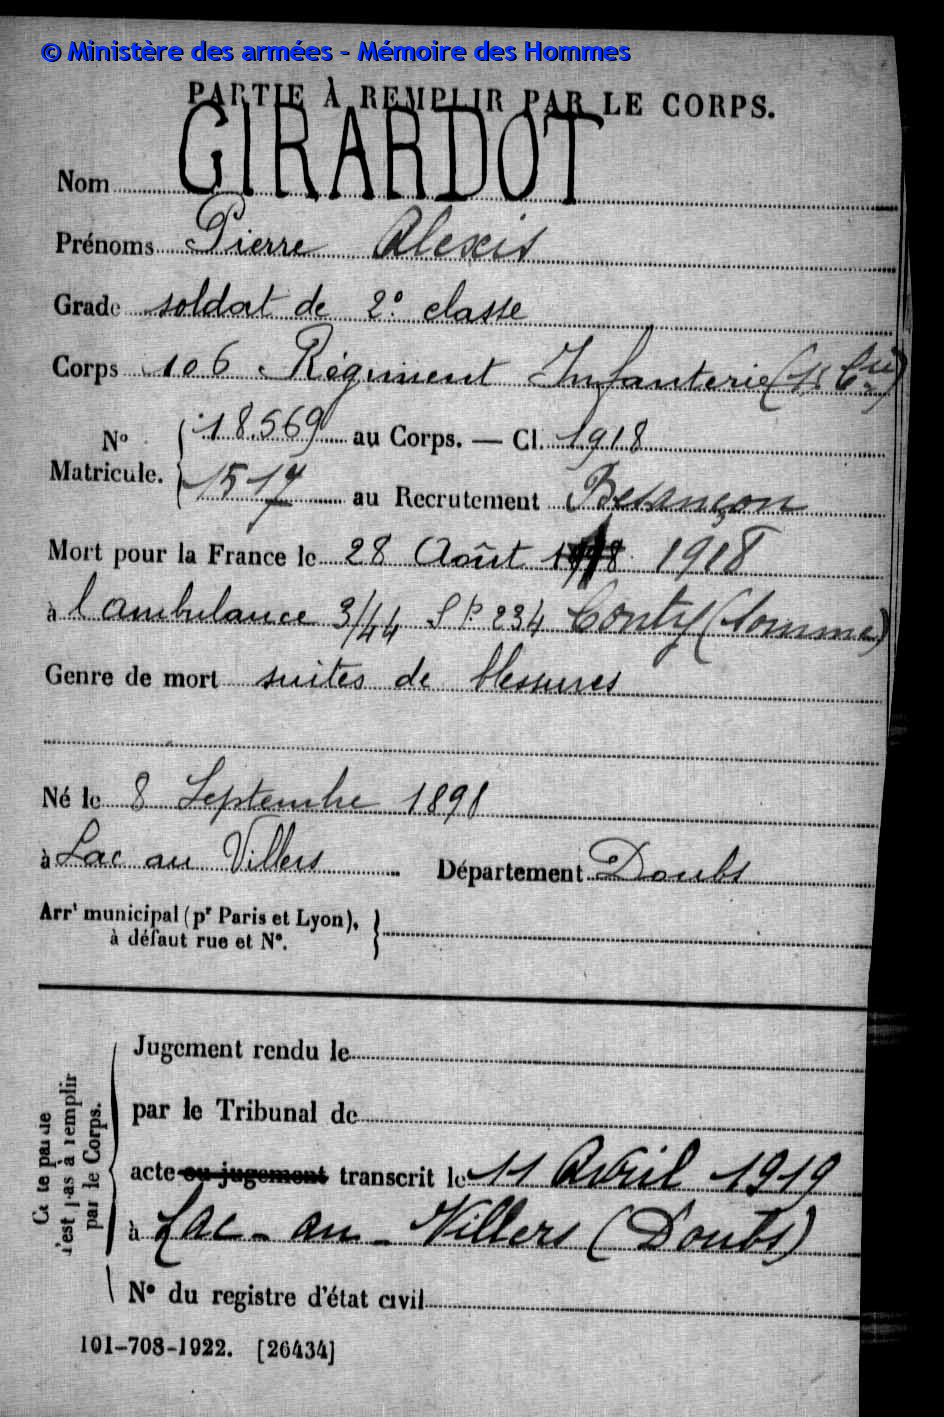 © Ministère des armées - Mémoire des Hommes
PARTIE À REMPLIR PAR LE CORPS.
Nom GIRARDOT
Prénoms Pierre Alexis
Grade soldat de 2e classe
Corps 106 Régiment Infanterie (11 Cie)
No Matricule. { 18.569 au Corps. — Cl. 1918
1517 au Recrutement Besançon
Mort pour la France le 28 Août 1918 1918
à l'ambulance 3/44 S.P. 234 Conty (Somme)
Genre de mort suites de blessures
Né le 8 Septembre 1898
à Lac au Villers Département Doubs
Arrt municipal (pr Paris et Lyon),
à défaut rue et N°.
Jugement rendu le
par le Tribunal de
acte ou jugement transcrit le 11 Avril 1919
à Lac-au-Villers (Doubs)
N° du registre d'état civil
Cette partie
n'est pas à remplir
par le Corps.
101-708-1922. [26434]